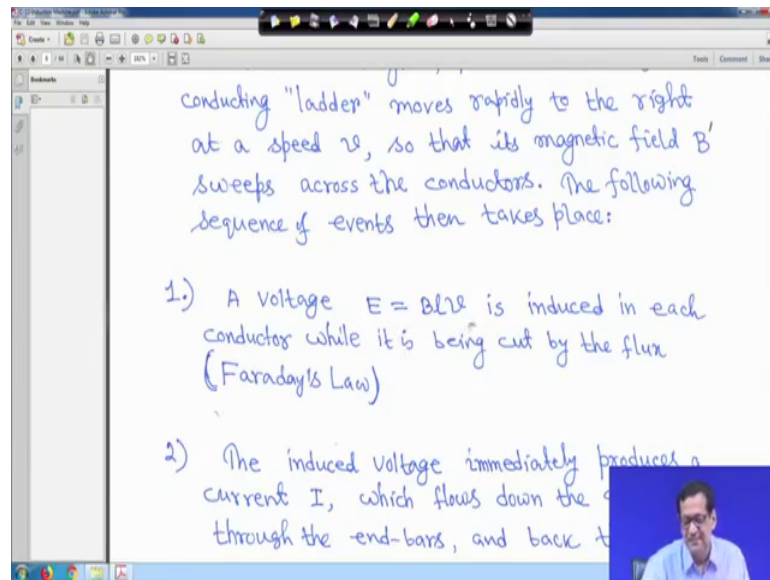 File Edit View Window Help
Create
Tools Comment
Bookmarks
conducting "ladder" moves rapidly to the right
at a speed v, so that its magnetic field B'
sweeps across the conductors. The following
sequence of events then takes place:
1.) A voltage E = Blv is induced in each
conductor while it is being cut by the flux
(Faraday's Law)
2) The induced voltage immediately produces a
current I, which flows down the
through the end-bars, and back